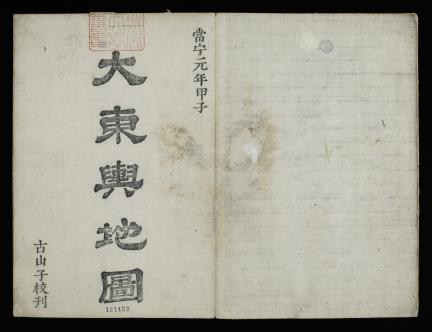 當宁元年甲子
大東輿地圖
古山子校刊
121452